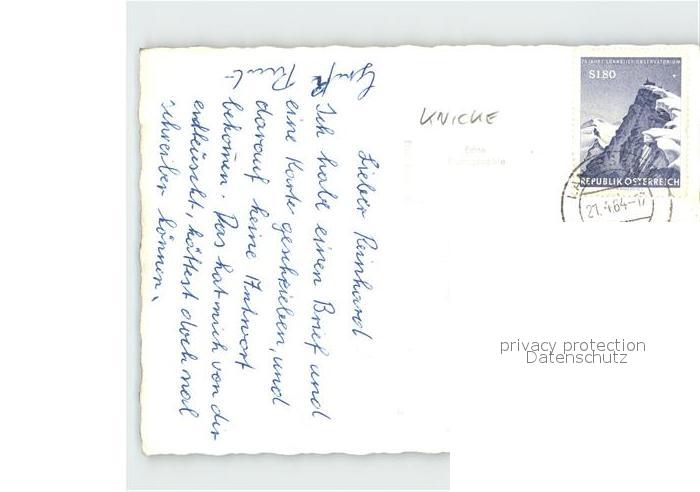 Lieber Reinhard
Ich habe einen Brief und
eine Karte geschrieben, und
darauf keine Antwort
bekommen. Das hat mich von dir
enttäuscht, hättest doch mal
schreiben können.
Gruß
KNICKE
75 JAHRE SONNBLICK-OBSERVATORIUM
S1.80
REPUBLIK ÖSTERREICH
21.4.64-17
privacy protection
Datenschutz